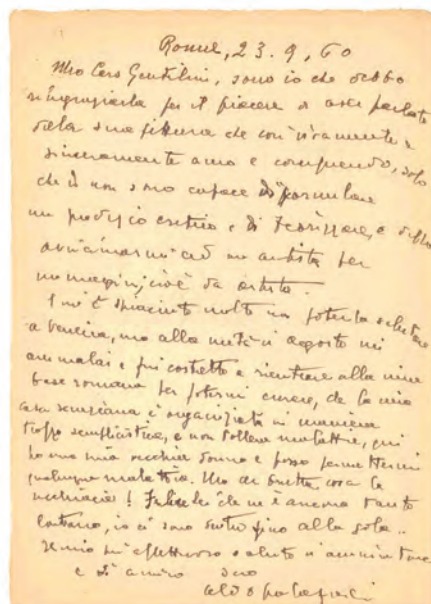 Roma, 23.9.60
Mio Caro Gentilini, sono io che debbo
ringraziarla per il piacere di aver parlato
della sua pittura che così vivamente e
sinceramente amo e comprendo, solo
che io non sono capace di formulare
un giudizio critico e di teorizzare, e debbo
avvicinarmi ad un artista per
immagini, cioè da artista.
mi è spiaciuto molto non poterla salutare
a Venezia, ma alla metà di agosto mi
ammalai e fui costretto a rientrare alla mia
base romana per potermi curare, la mia
casa veneziana è organizzata in maniera
troppo semplicistica, e non tollera malattie, qui
ho una mia vecchia donna e posso permettermi
qualunque malattia. Ma che brutta cosa la
vecchiaia! Felice lei che ne è ancora tanto
lontano, io ci sono dentro fino alla gola..
Le invio un affettuoso saluto d'ammiratore
e di amico suo
aldo palazzeschi